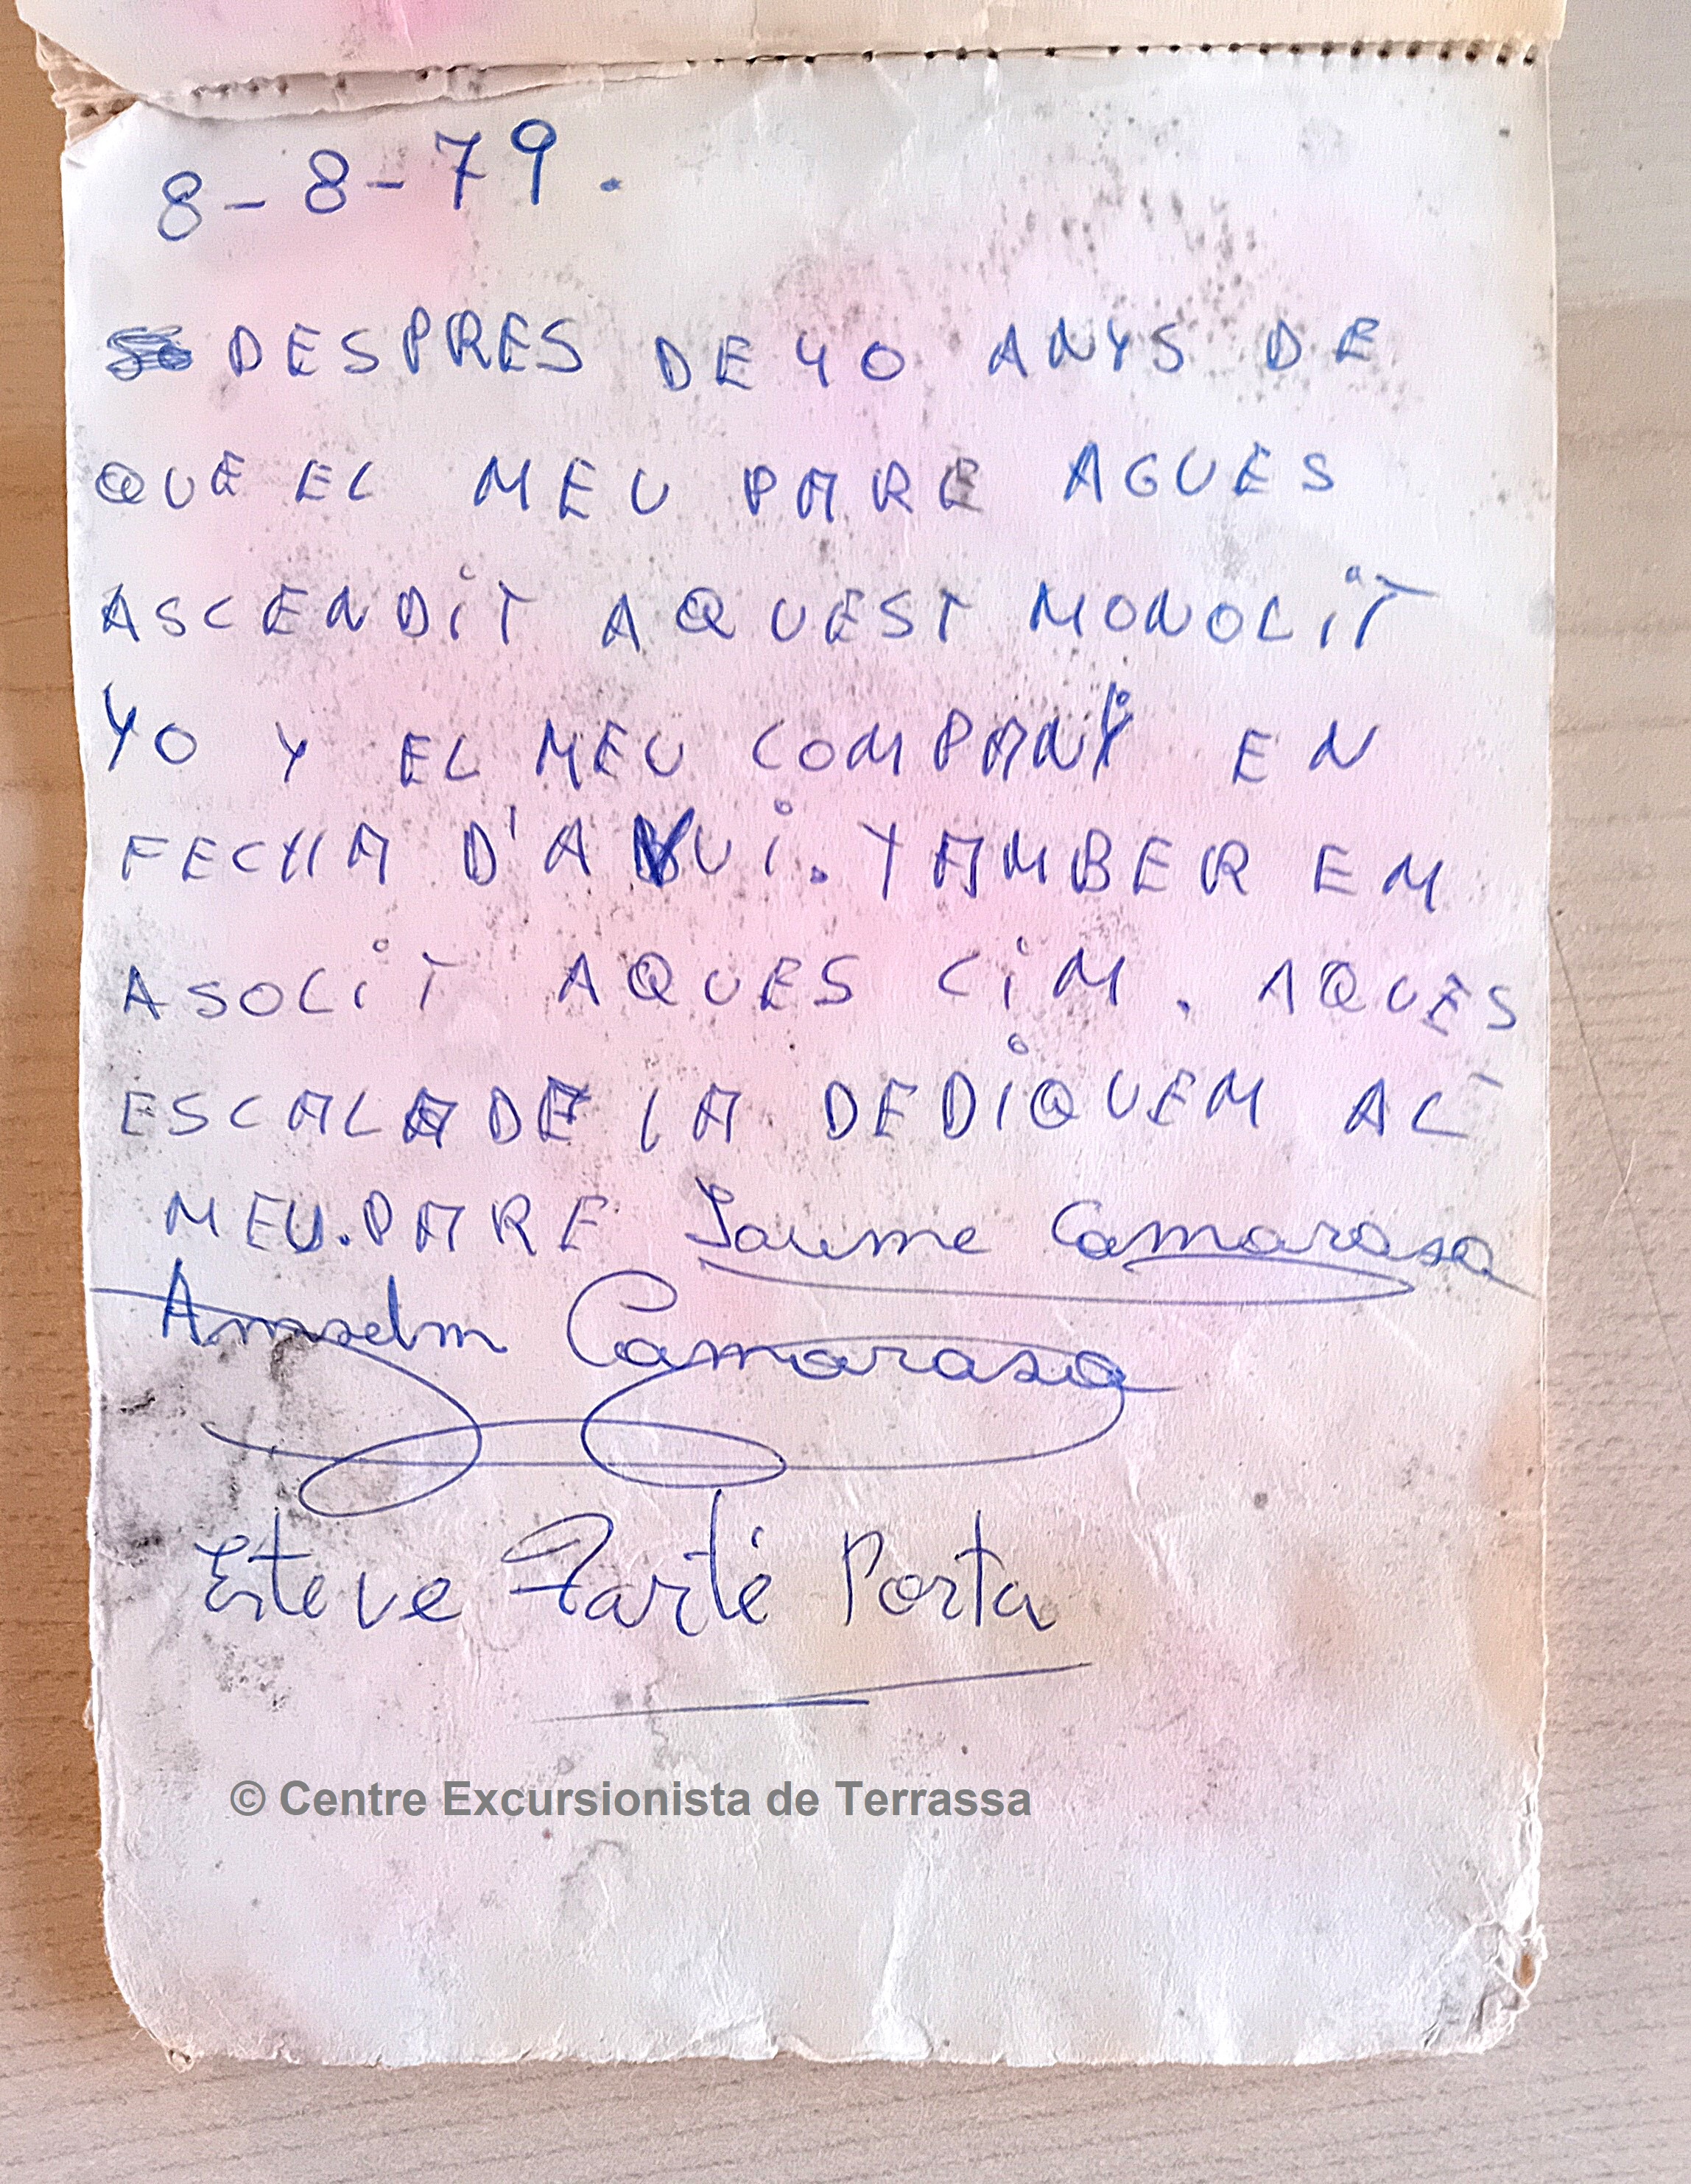 8-8-79.
DESPRES DE 40 ANYS DE
QUE EL MEU PARE AGUES
ASCENDiT AQUEST MONOLiT
YO Y EL MEU COMPANY EN
FECHA D'AVUi. TAMBER EM
ASOLiT AQUES CiM. AQUES
ESCALADE LA DEDiQUEM AL
MEU.PARE Jaume Camarasa
Anselm Camarasa
Esteve Farté Porta
© Centre Excursionista de Terrassa